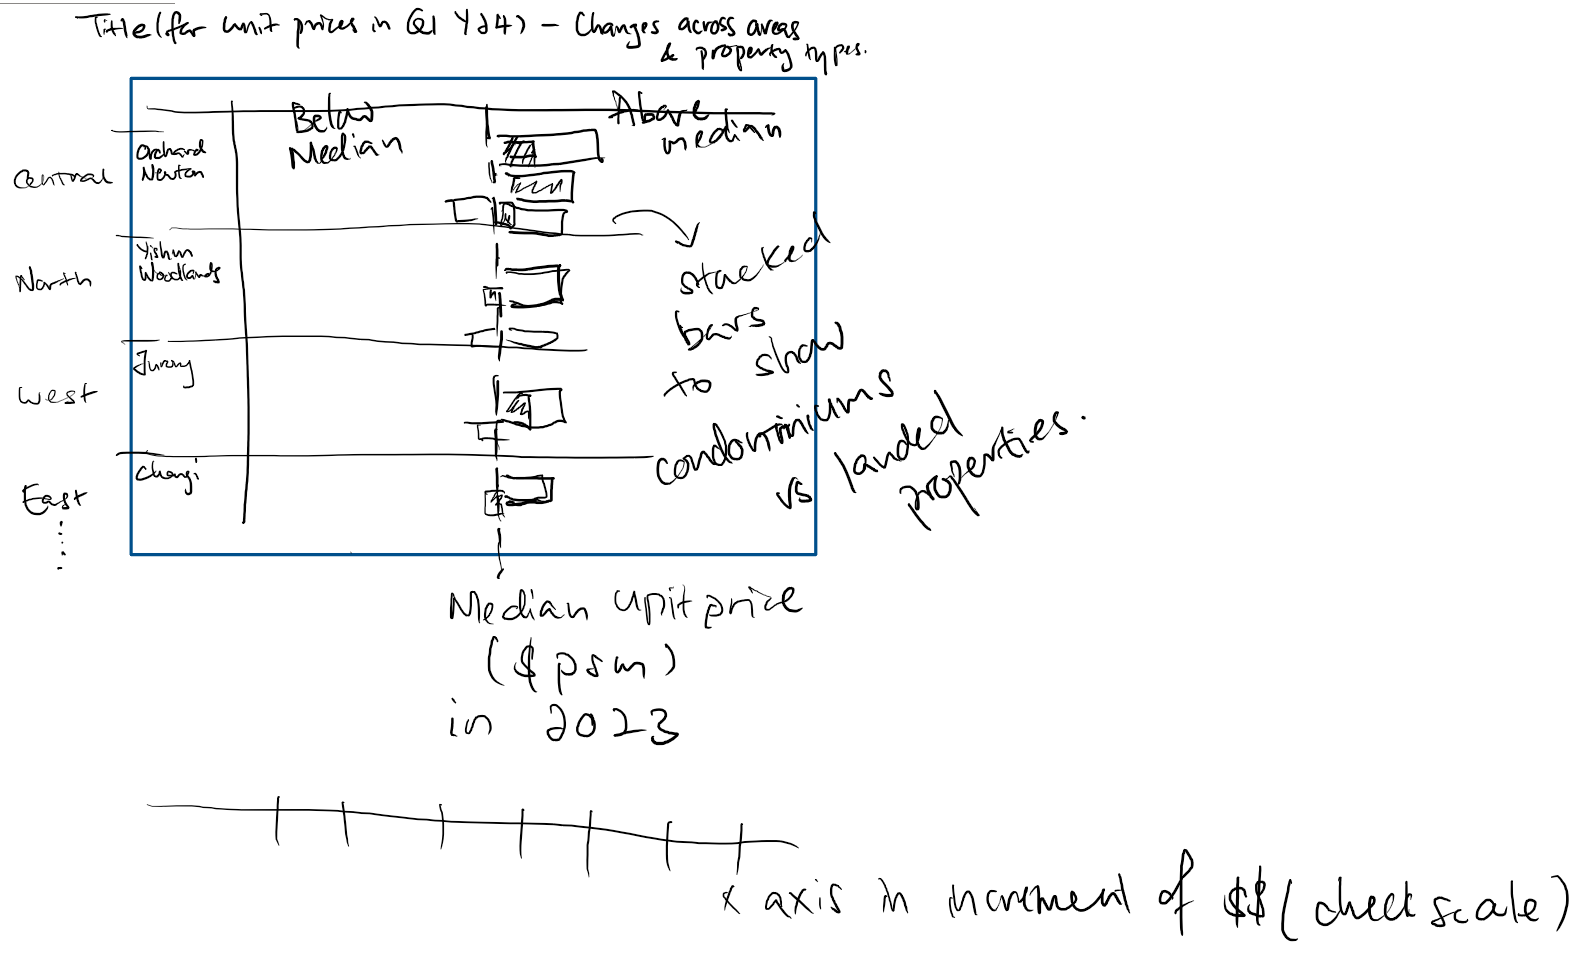 Title (for unit prices in Q1 Y24) – Changes across areas
& property types.
Below
Median
Above
median
Central
Orchard
Newton
North
Yishun
Woodlands
West
Jurong
East
Changi
stacked
bars
to show
condominiums
vs landed
properties.
Median unit price
($ psm)
in 2023
x axis in increment of $$ (check scale)